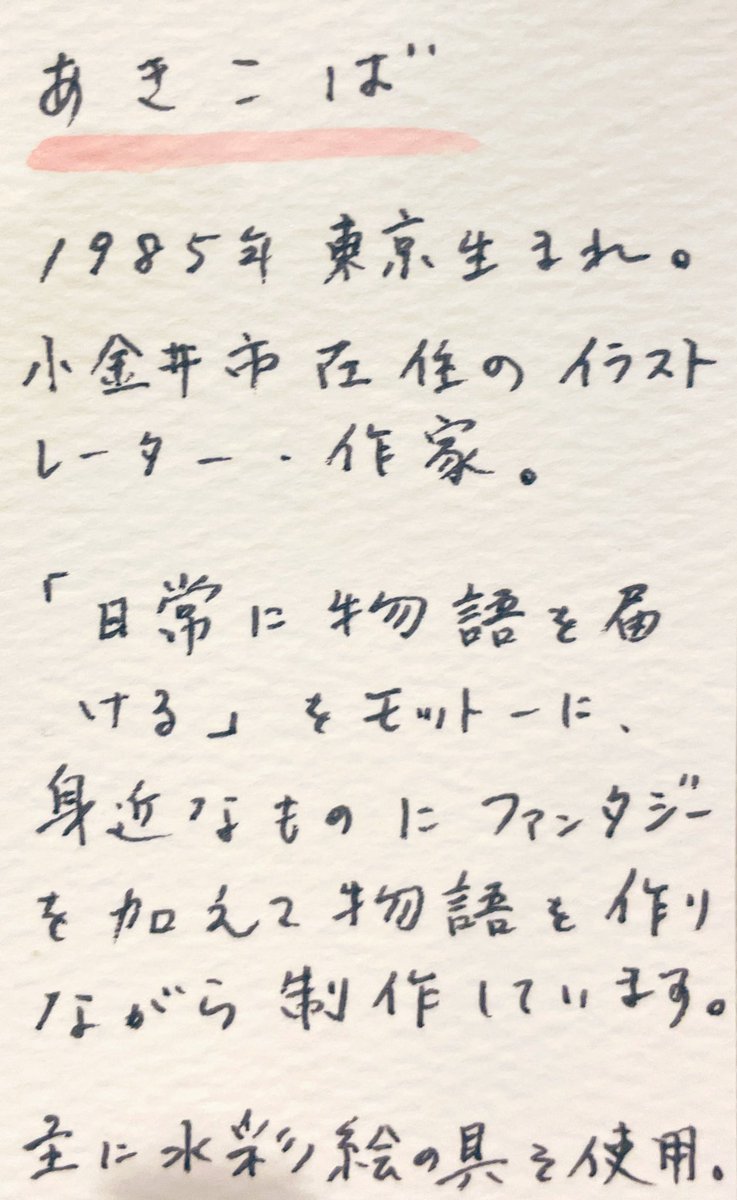 あきこば
1985年 東京生まれ。
小金井市在住のイラスト
レーター・作家。
「日常に物語を届
ける」をモットーに、
身近なものにファンタジー
を加えて物語を作り
ながら制作しています。
主に水彩絵の具を使用。